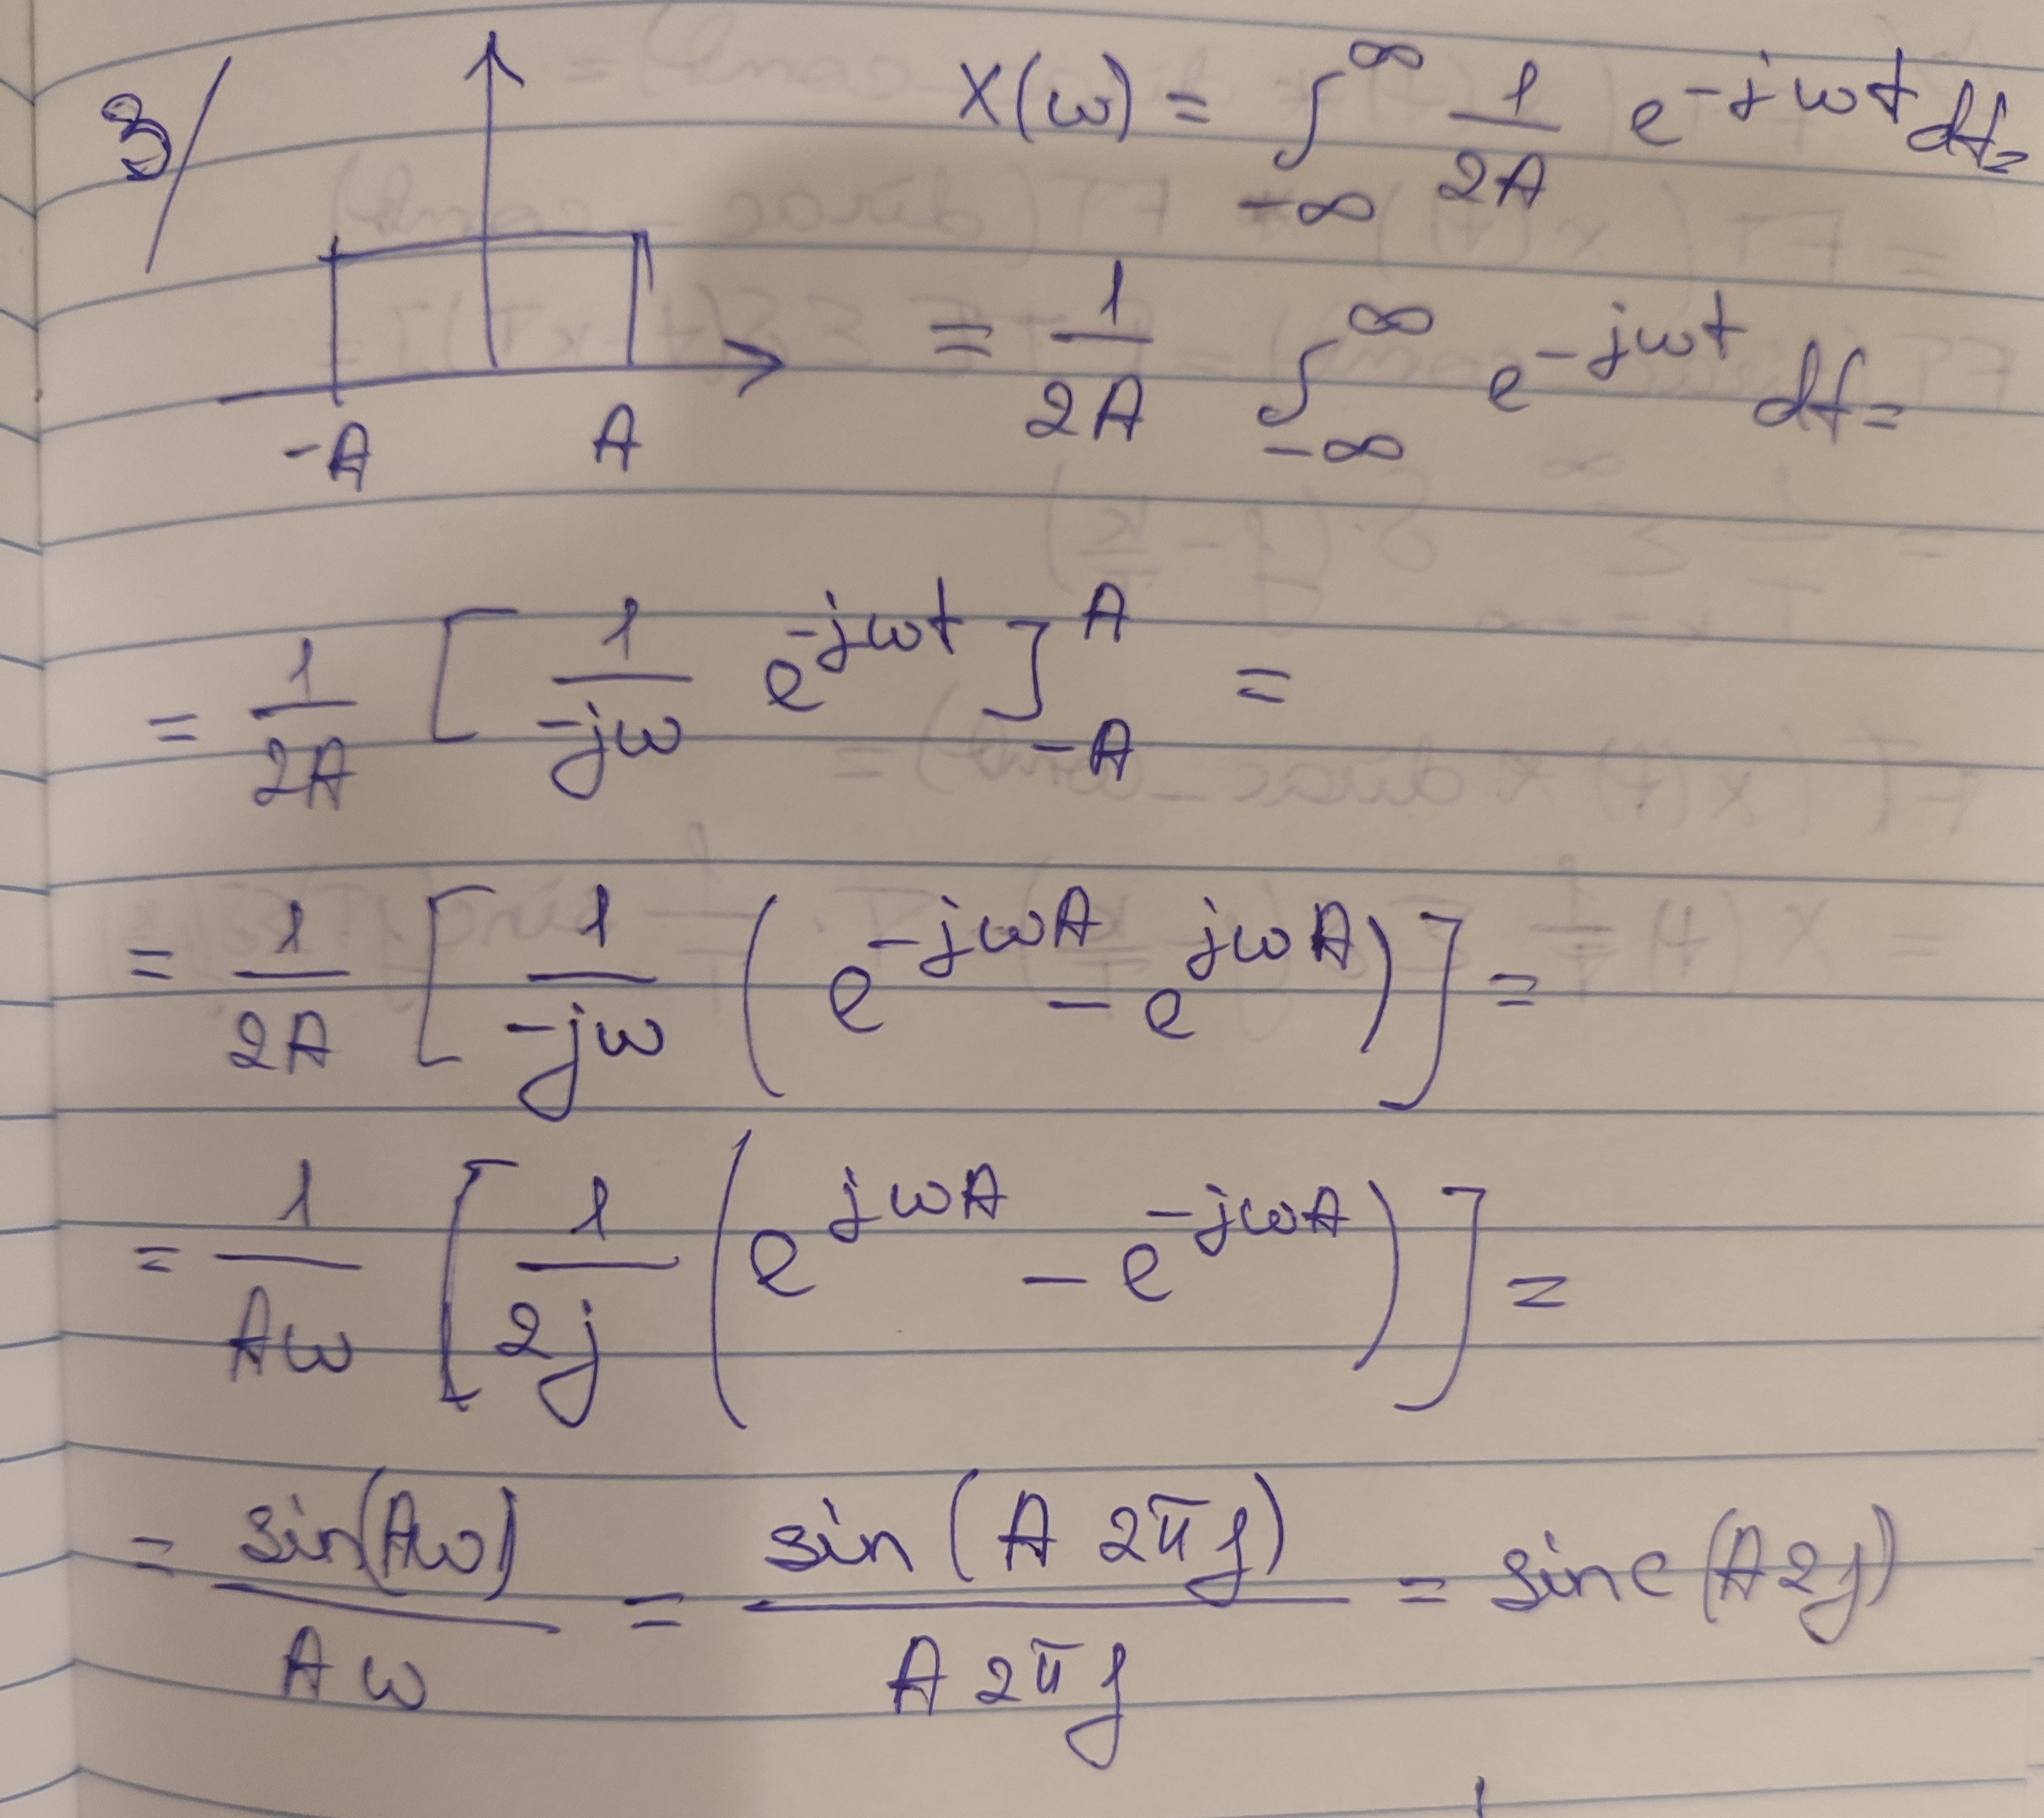 3/
X(ω) = ∫_{-∞}^{∞} 1/2A e^{-jωt} dt =
= 1/2A ∫_{-∞}^{∞} e^{-jωt} dt =
-A A
= 1/2A [ 1/-jω e^{-jωt} ]_{-A}^{A} =
= 1/2A [ 1/-jω ( e^{-jωA} - e^{jωA} ) ] =
= 1/Aω [ 1/2j ( e^{jωA} - e^{-jωA} ) ] =
= sin(Aω)/Aω = sin(A 2πf)/A 2πf = sinc(A2f)